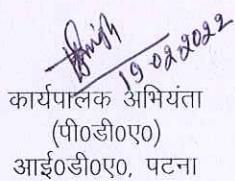 19.02.2022
कार्यपालक अभियंता
(पी०डी०ए०)
आई०डी०ए०, पटना